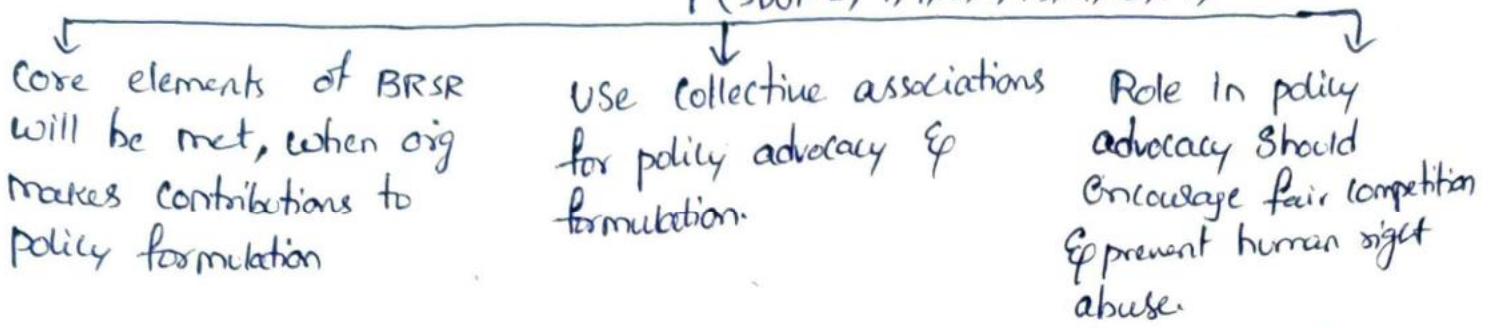 Core elements of BRSR
will be met, when org
makes contributions to
policy formulation
Use Collective associations
for policy advocacy &
formulation.
Role in policy
advocacy Should
encourage fair competition
& prevent human right
abuse.